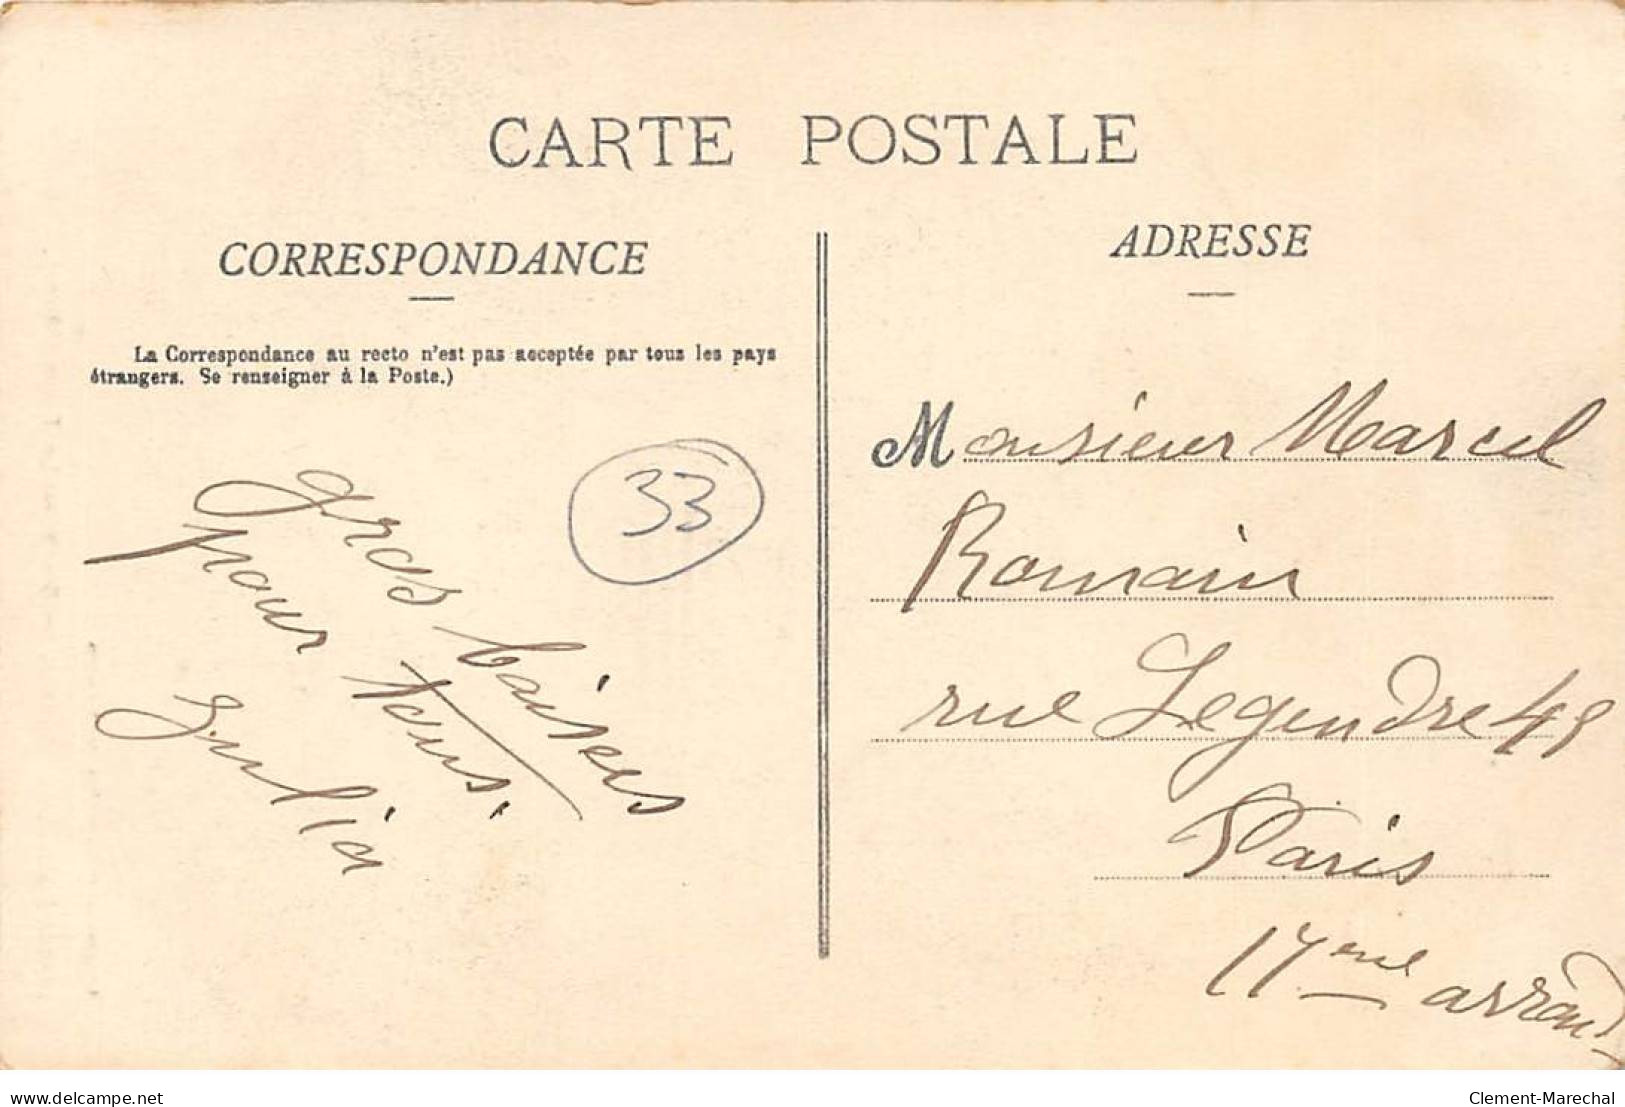 CARTE POSTALE
CORRESPONDANCE
La Correspondance au recto n'est pas acceptée par tous les pays
étrangers. Se renseigner à la Poste.)
33
gros baisers
pour tous.
Julia
ADRESSE
Monsieur Marcel
Romain
rue Legendre
Paris
17eme arrond
www.delcampe.net
Clement-Marechal